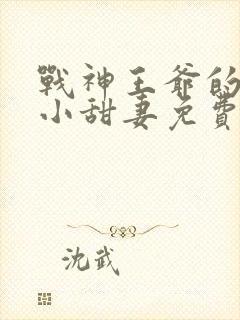 戰神王爺的
小甜妻免費
沈武